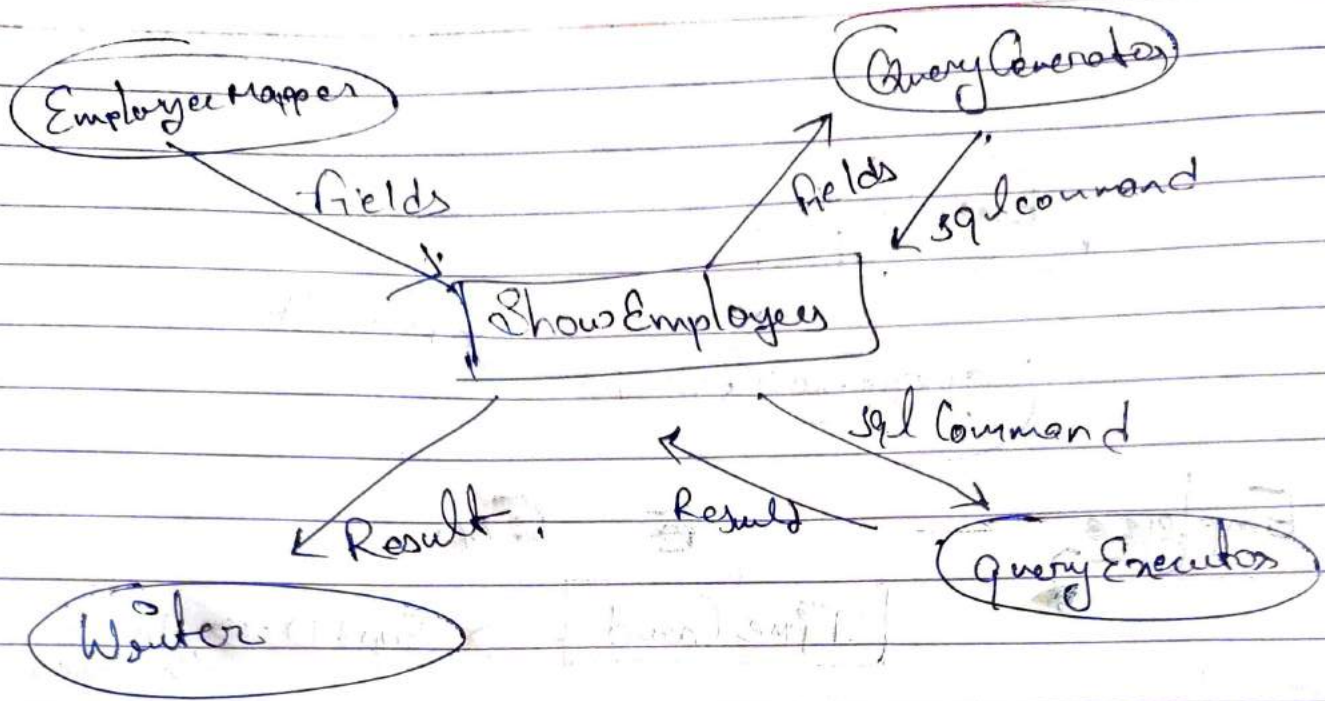 EmployeeMapper
QueryGenerator
fields
fields
sqlcommand
ShowEmployees
sql Command
Result
Result
Writer
QueryExecutor